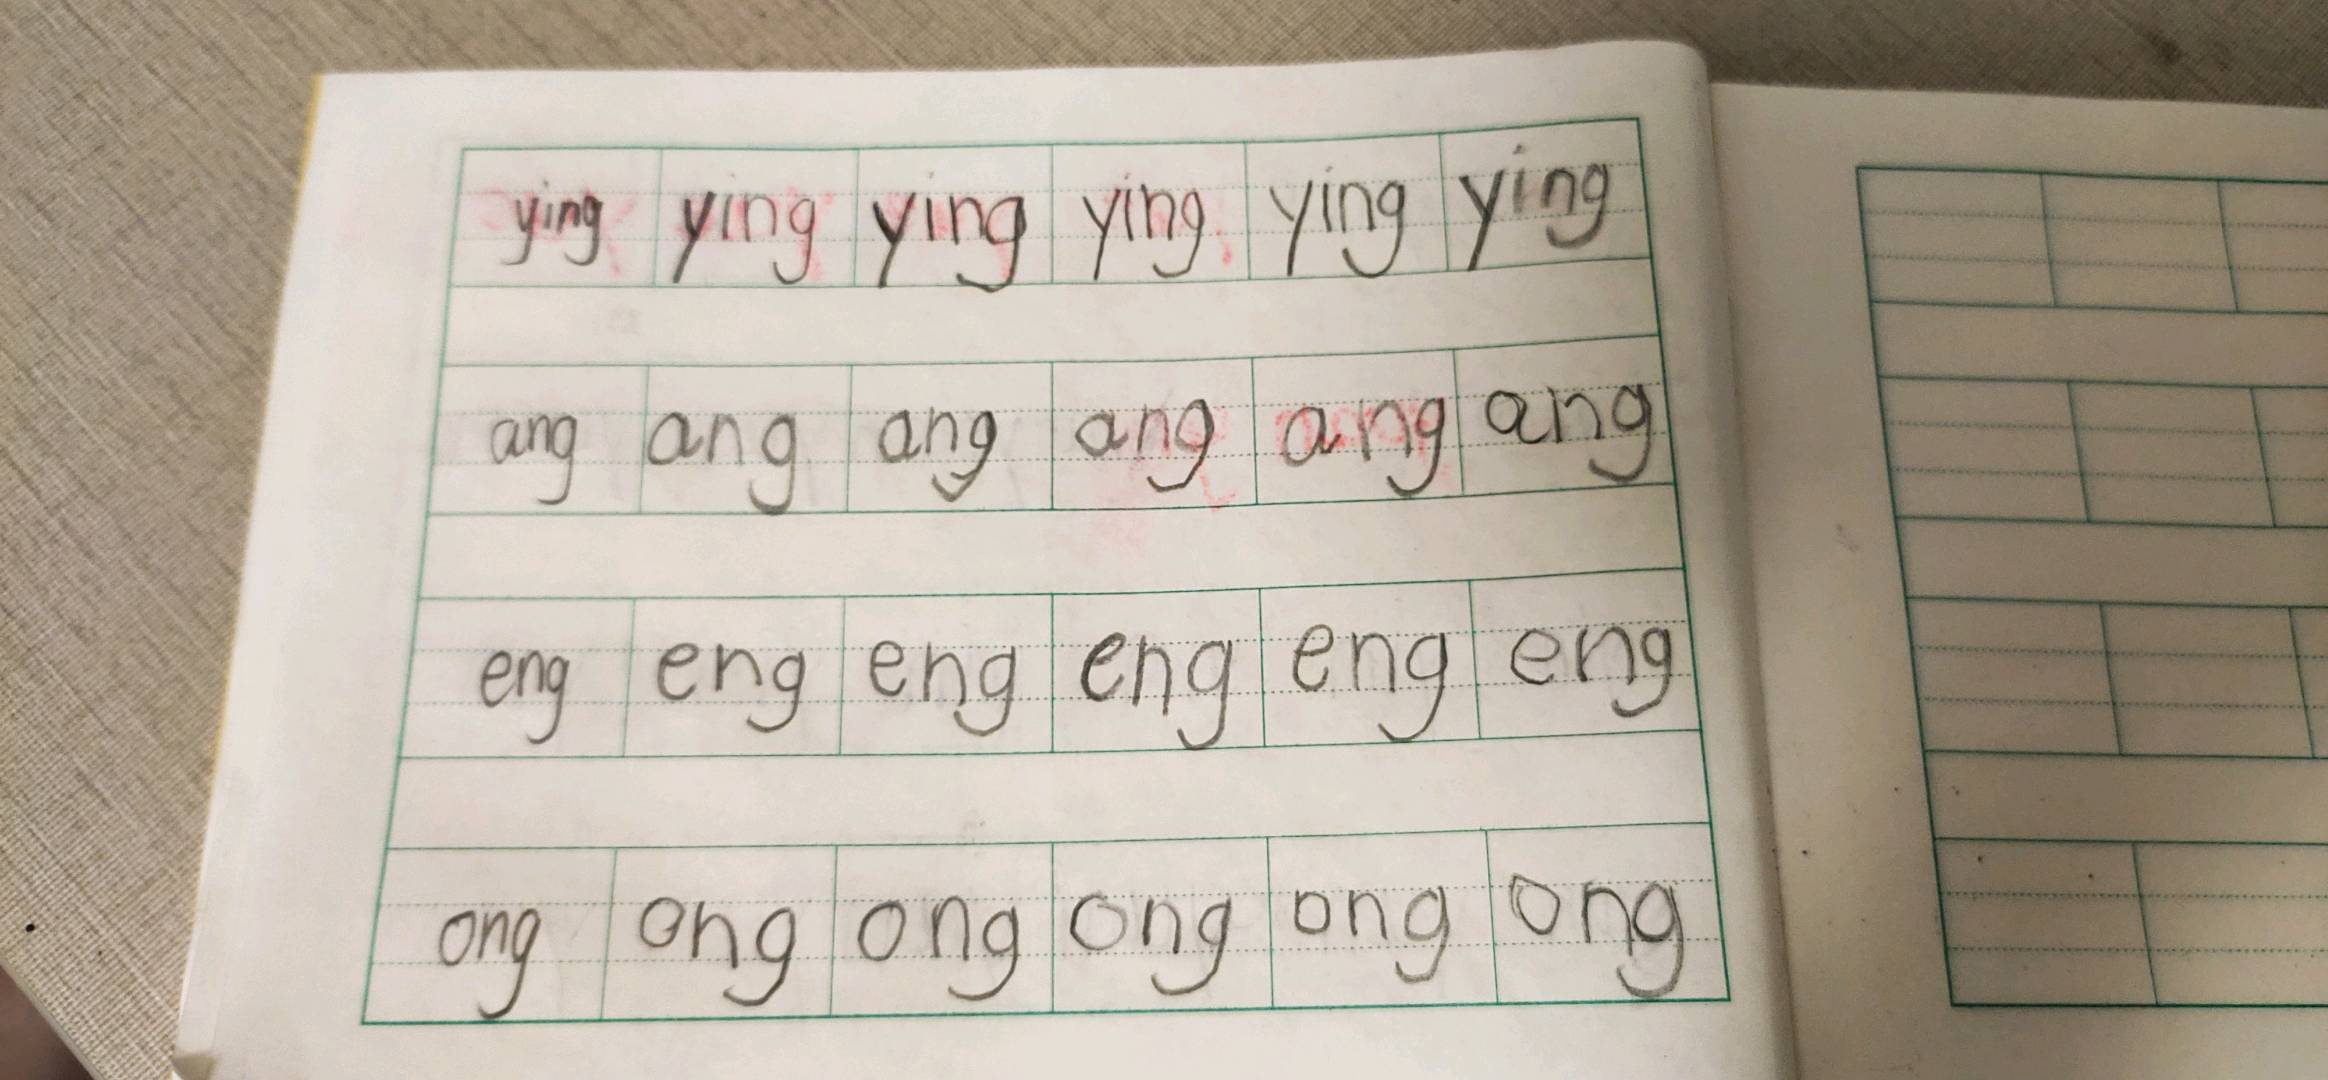 ying ying ying ying ying ying
ang ang ang ang ang ang
eng eng eng eng eng eng
ong ong ong ong ong ong